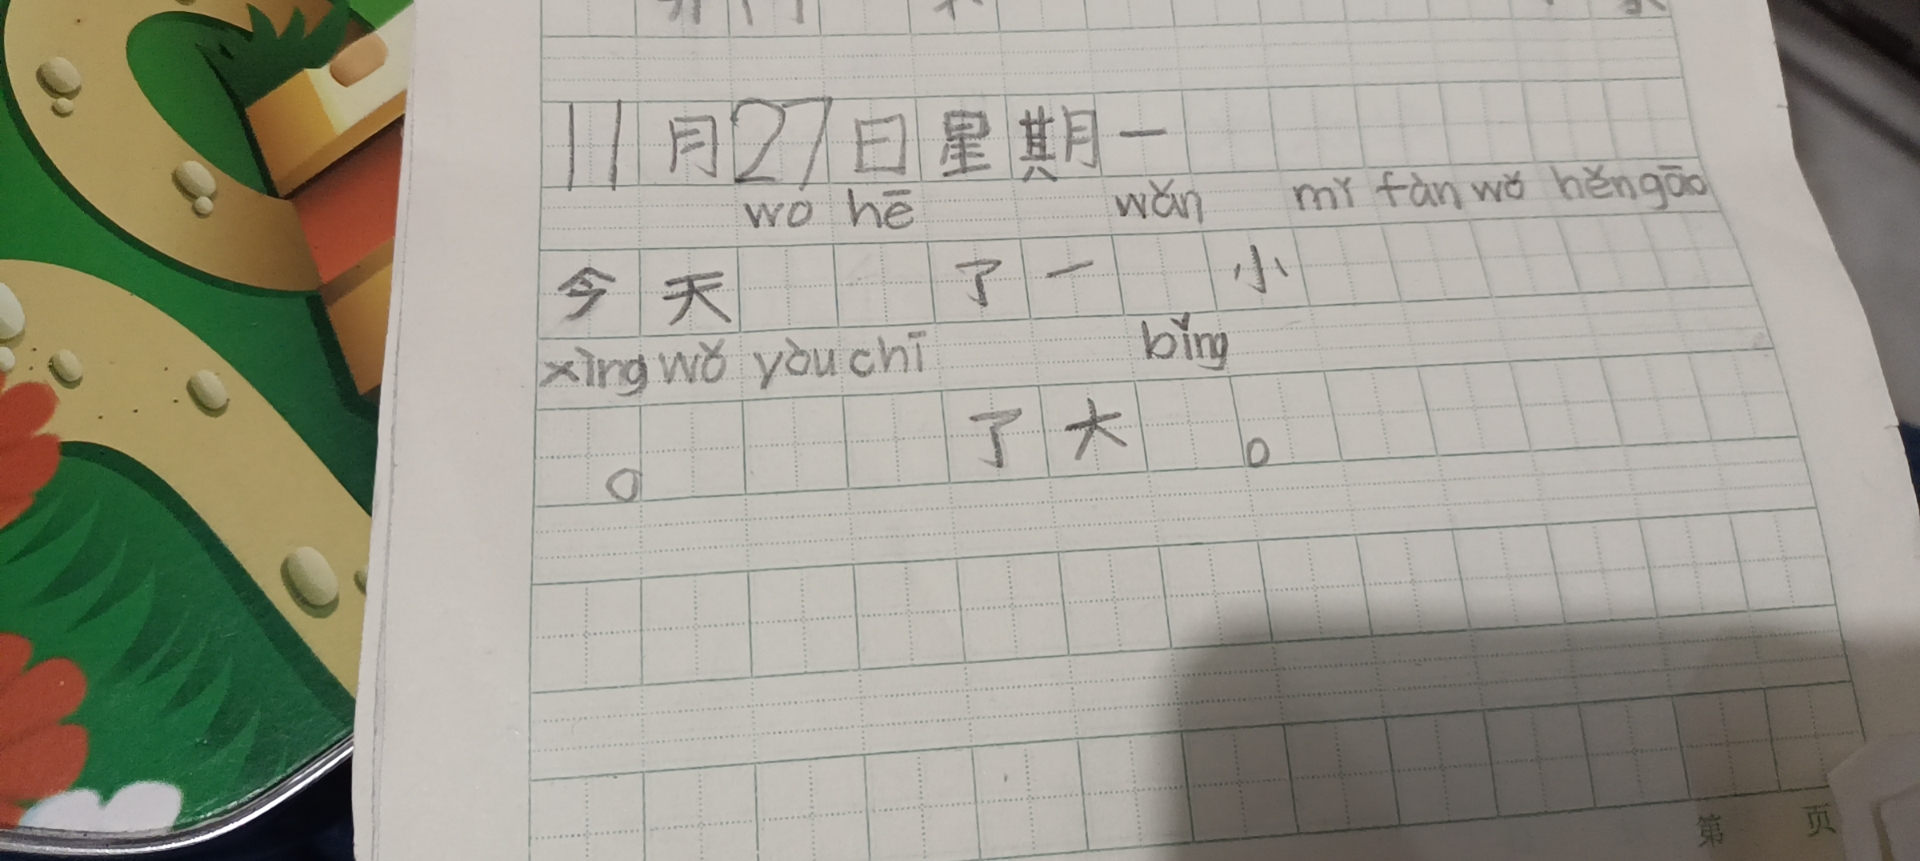 11月27日星期一
wo hē wǎn mǐ fàn wǒ hěn gāo
今天了一小
xìng wǒ yòu chī bǐng
。了大。
第 页